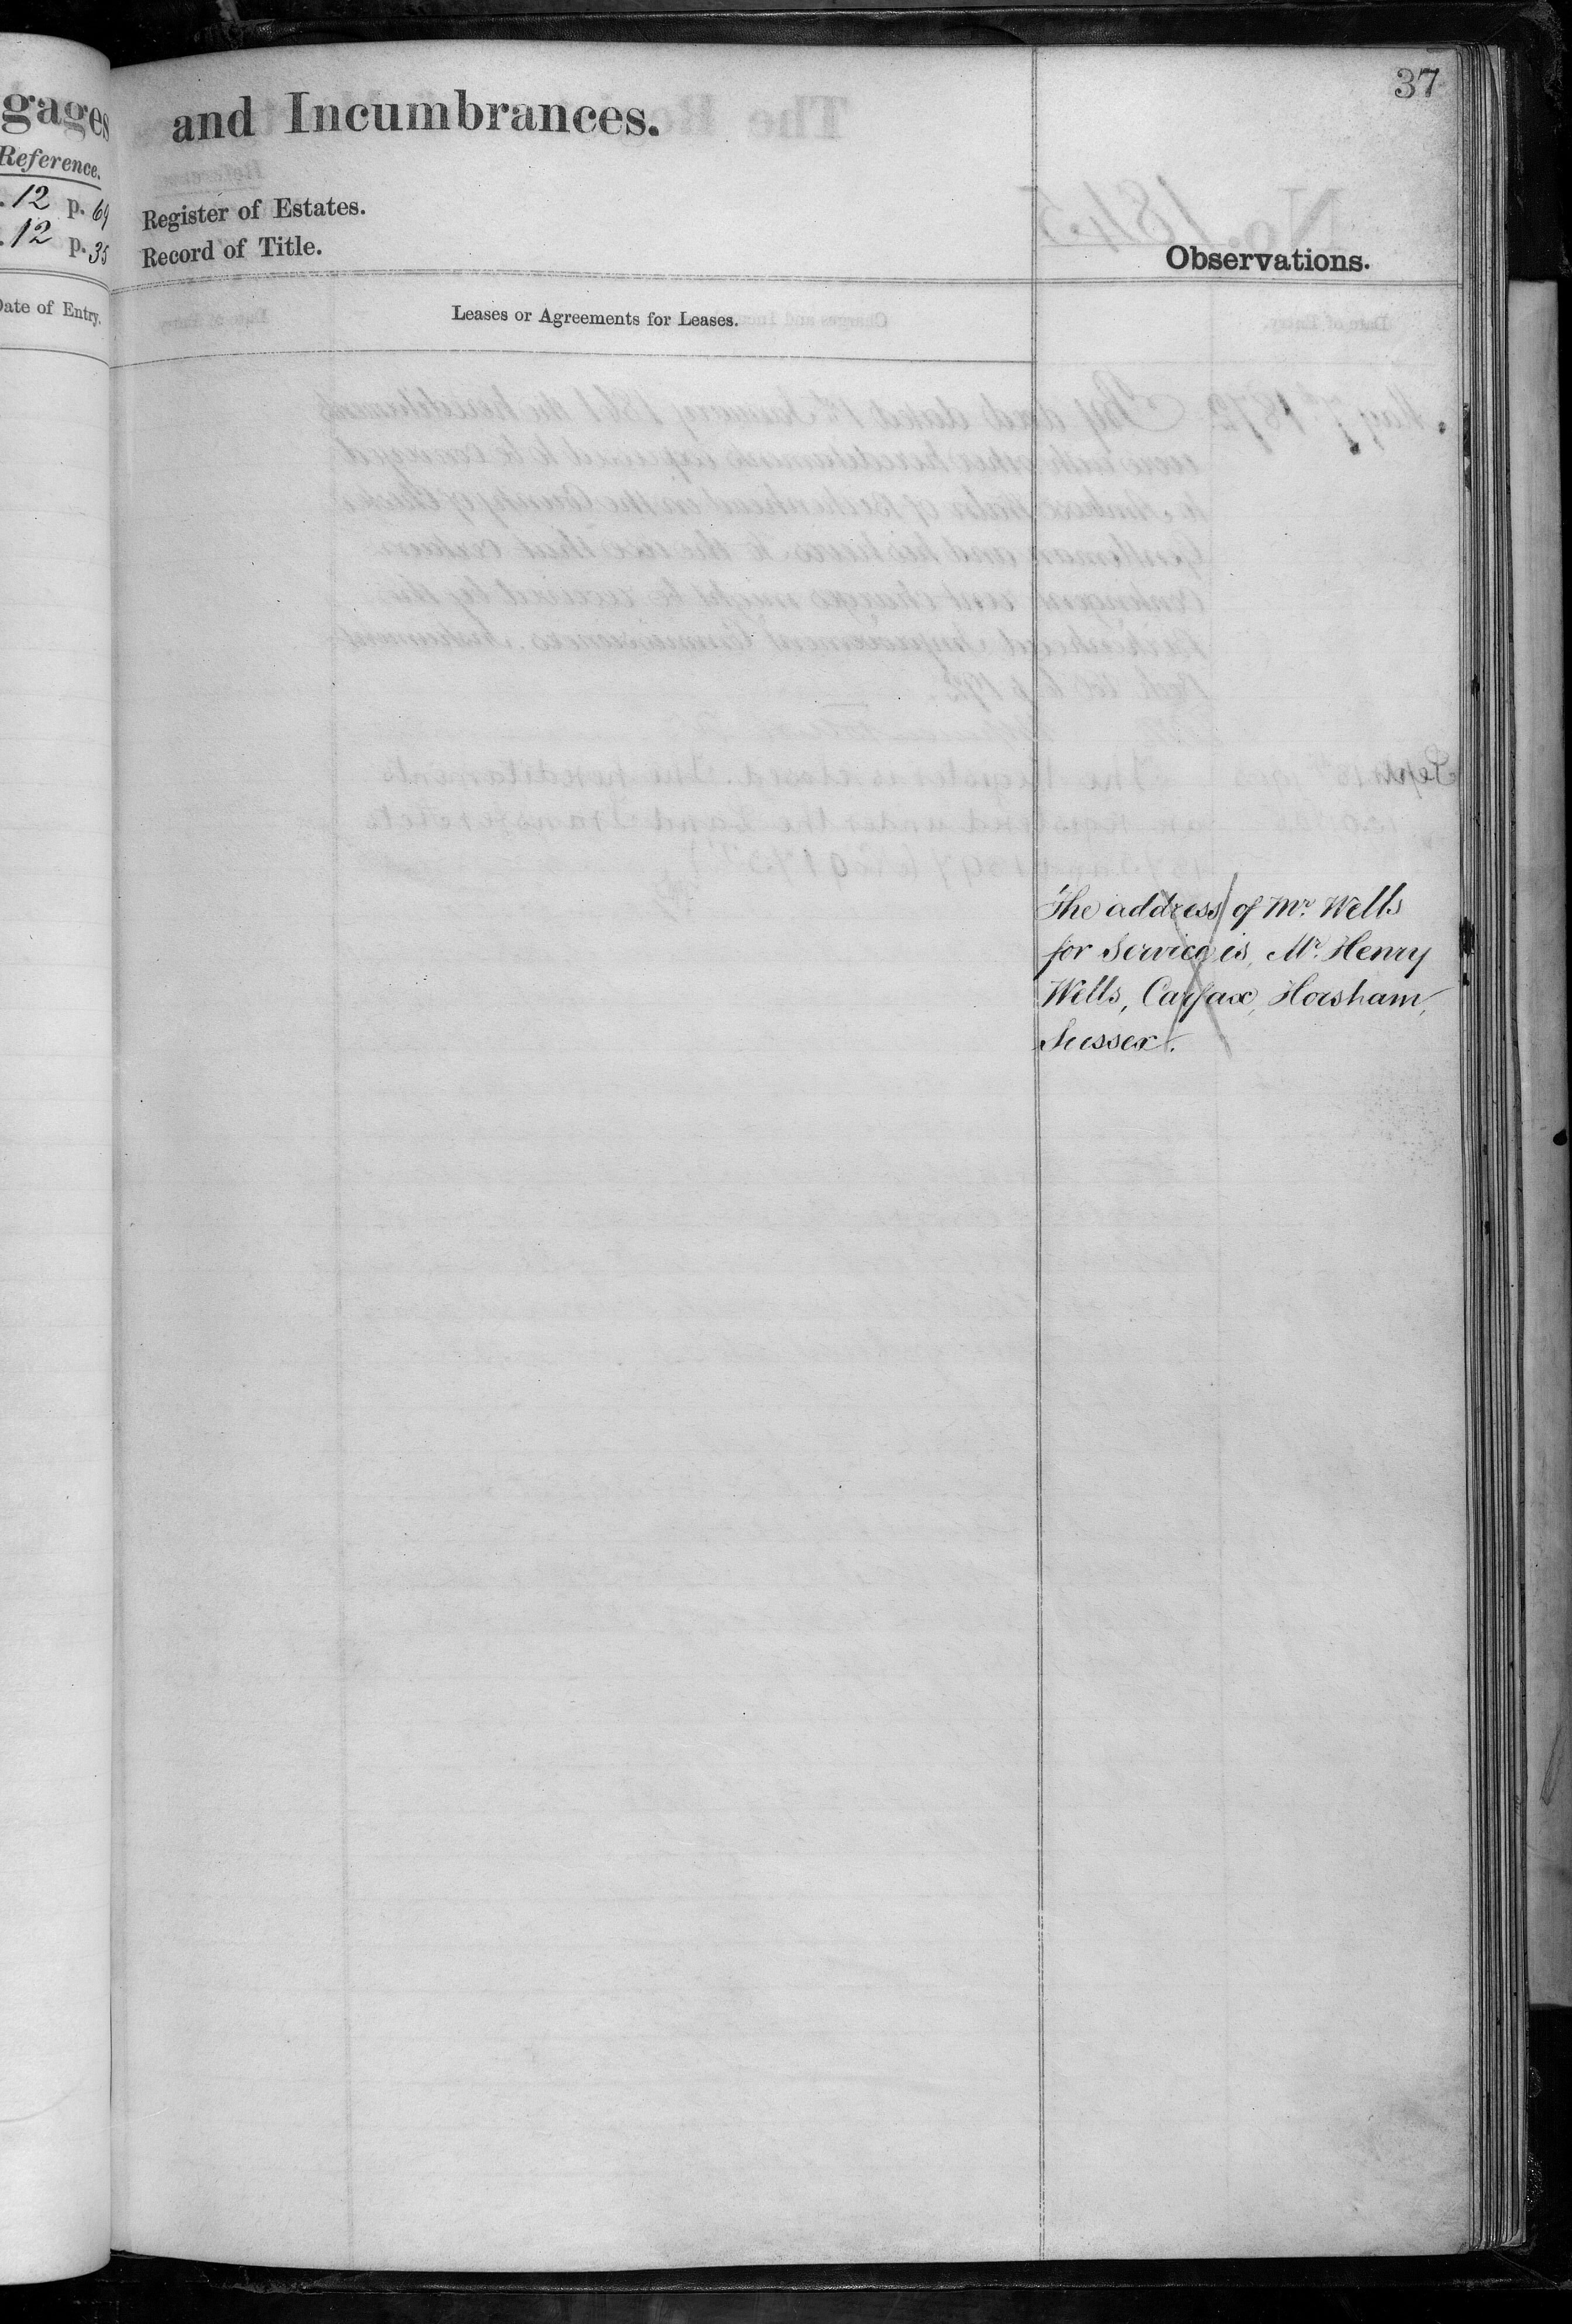 37
gages
and Incumbrances.
Reference.
12 p. 69
Register of Estates.
12 p. 35
Record of Title.
Observations.
Date of Entry.
Leases or Agreements for Leases.
The address of Mr. Wells
for service is, Mr. Henry
Wells, Carfax, Horsham,
Sussex.